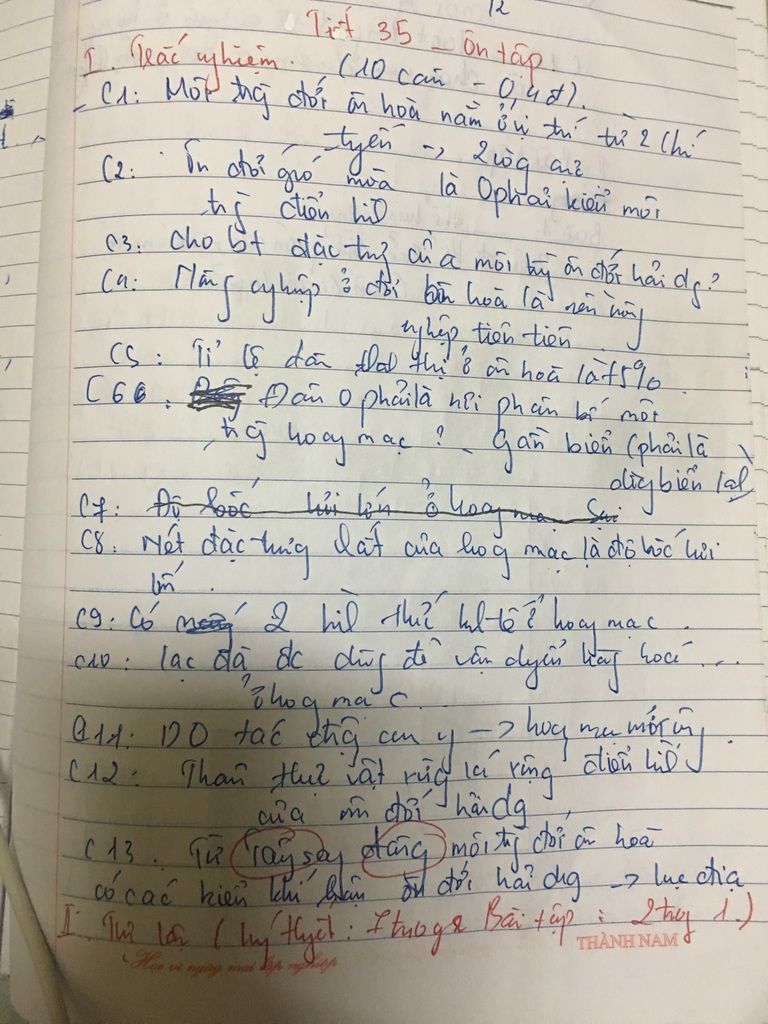 12
Tiết 35 - ôn tập
I Trắc nghiệm. (10 câu - 0,4đ).
C1: Môi trg đới ôn hoà nằm ở vị trí từ 2 chí
tuyến -> 2 vòg cực
C2: Ôn đới gió mùa là 0 phải kiểu môi
trg điển hình
C3: Cho bt đặc trưg của môi trg ôn đới hải dg?
C4: Nông nghiệp ở đới ôn hoà là nền nông
nghiệp tiên tiến
C5: Tỉ lệ dân đô thị ở ôn hoà là 75%
C6: Đâu 0 phải là nơi phân bố môi
trg hoag mạc? Gần biển (phải là
dòg biển lạh)
C7: Độ bốc hơi lớn ở hoag mạc
C8: Nét đặc trưng của hoag mạc là độ bốc hơi
lớn.
C9: Có 2 hình thức kt-tế ở hoag mạc.
C10: lạc đà đc dùg để vận chuyển hàg hoá...
ở hoag mạc.
C11: DO tác độg con ng -> hoag mạc mở rộg.
C12: Thảm thực vật rừg lá rộg điển hình
của ôn đới hải dg
C13. Từ Tây sag đông môi trg đới ôn hoà
có các kiểu khí hậu ôn đới hải dg -> lục địa
I. Tự luận (lý thuyết: Bài tập: 2 trog 1.)
Học vì ngày mai lập nghiệp
THÀNH NAM